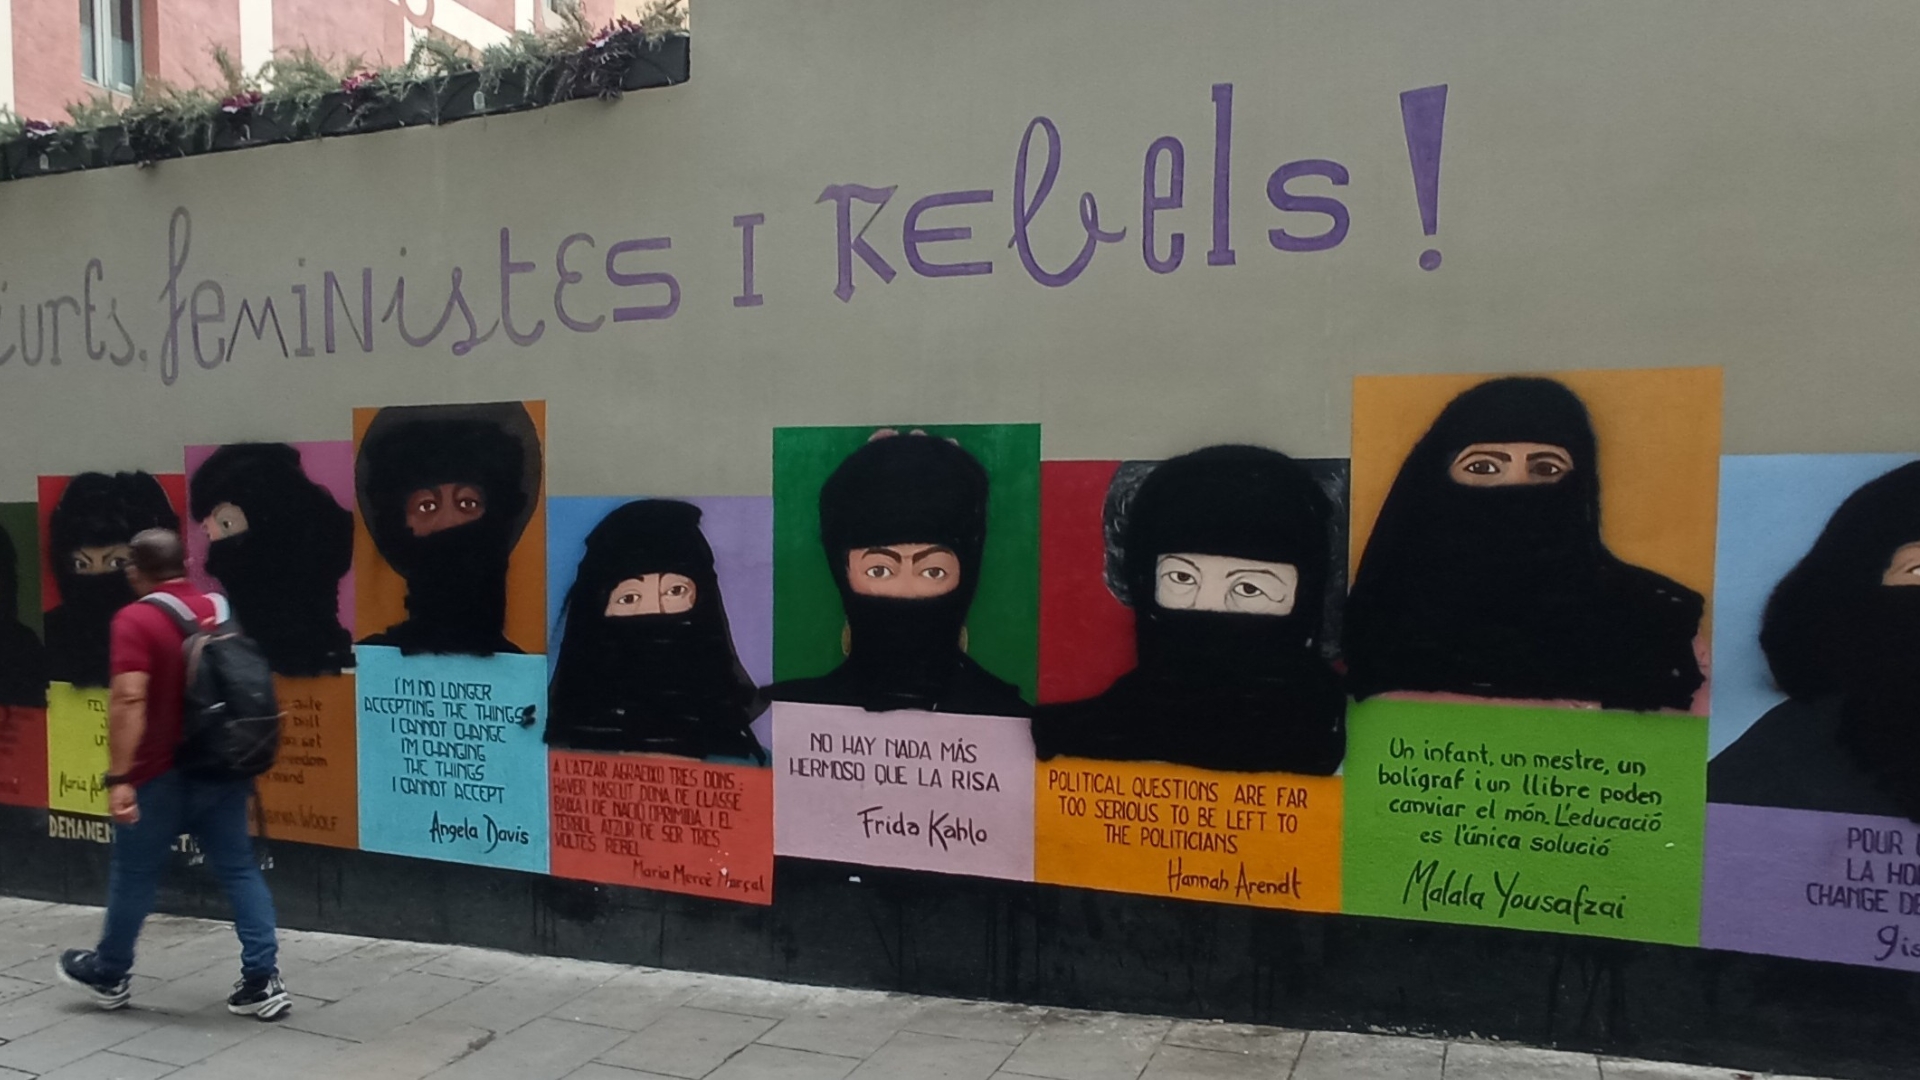 feministes i Rebels!
I'M NO LONGER
ACCEPTING THE THINGS
I CANNOT CHANGE
I'M CHANGING
THE THINGS
I CANNOT ACCEPT
Angela Davis
A L'ATZAR AGRAEIXO TRES DONS:
HAVER NASCUT DONA, DE CLASSE
BAIXA I DE NACIÓ OPRIMIDA. I EL
TÈRBOL ATZUR DE SER TRES
VOLTES REBEL
Maria Mercè Marçal
NO HAY NADA MÁS
HERMOSO QUE LA RISA
Frida Kahlo
POLITICAL QUESTIONS ARE FAR
TOO SERIOUS TO BE LEFT TO
THE POLITICIANS
Hannah Arendt
Un infant, un mestre, un
bolígraf i un llibre poden
canviar el món. L'educació
es l'única solució
Malala Yousafzai
POUR
LA
CHANGE
WOOLF
Maria